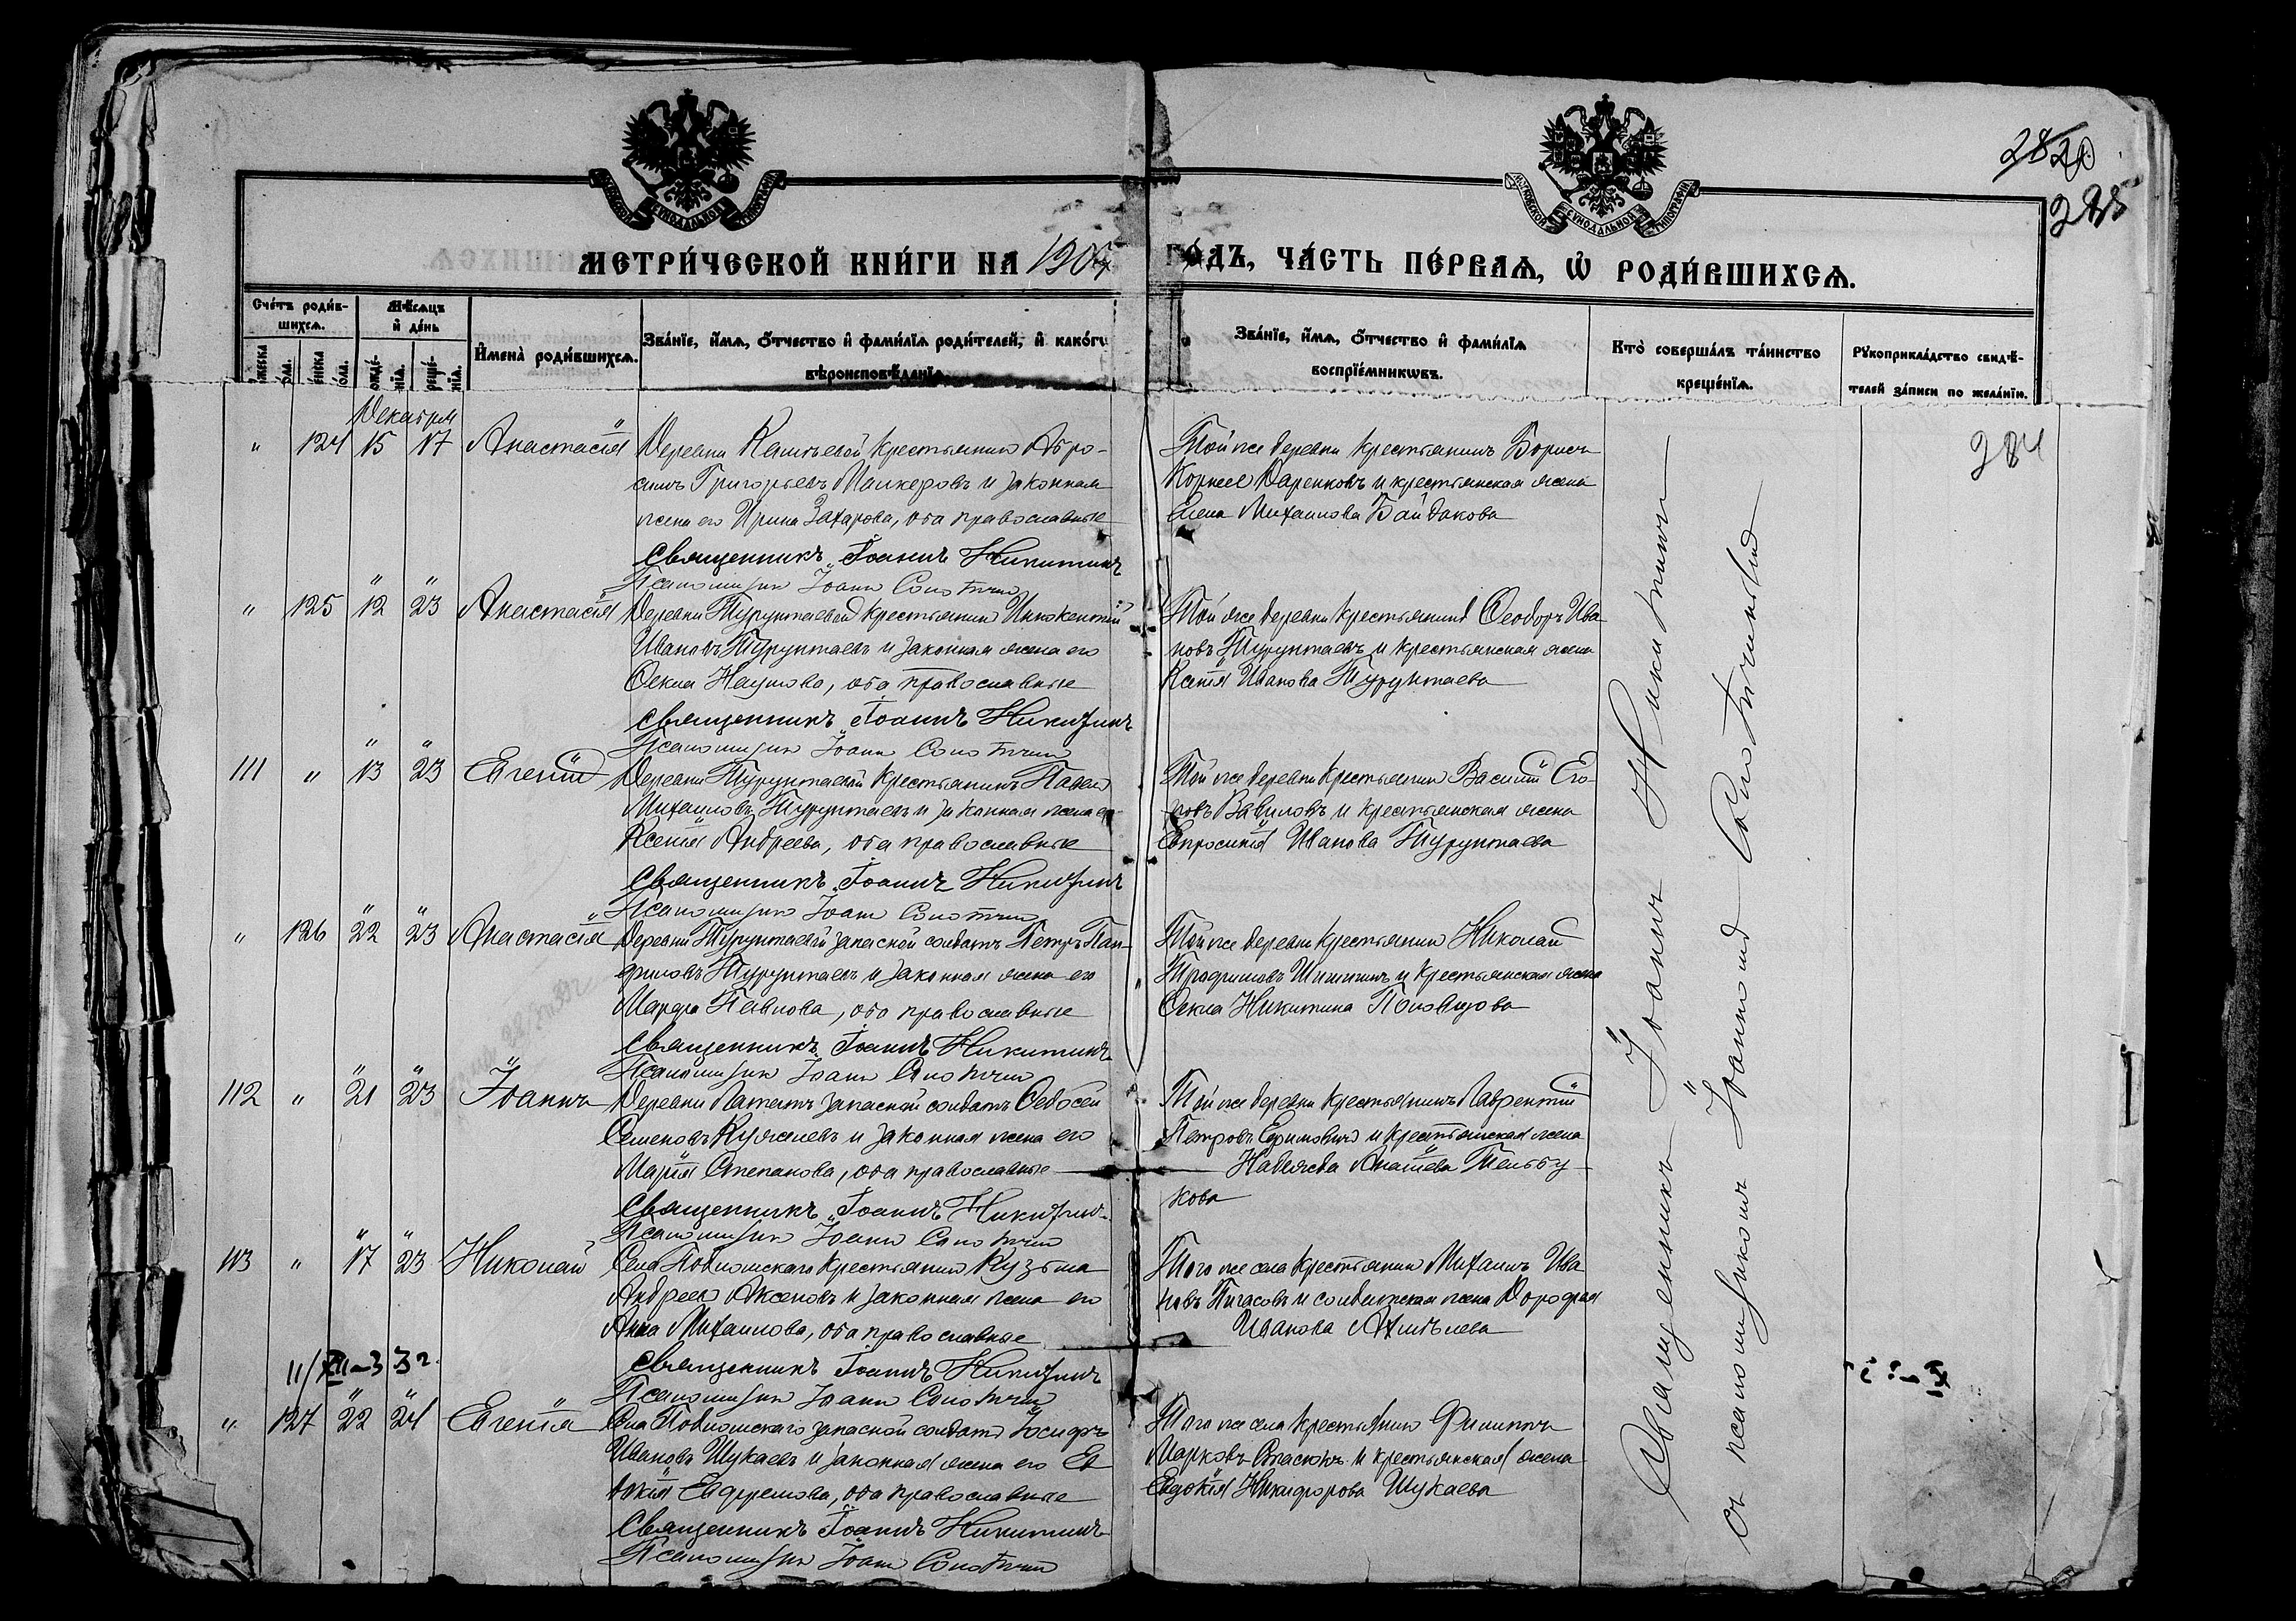 МОСКОВСКОЙ СѴНОДАЛЬНОЙ ТИПОГРАФІИ
МОСКОВСКОЙ СѴНОДАЛЬНОЙ ТИПОГРАФІИ
28
285
МЕТРИ́ЧЕСКОЙ КНИ́ГИ НА 190 ГО́ДЪ, ЧА́СТЬ ПЕ́РВАѦ, Ѡ҆ РОДИ́ВШИХСѦ.
Сче́тъ роди́в-
шихсѧ.
Мѣ́сѧцъ
и҆ де́нь
И҆мена̀ роди́вшихсѧ.
Зва́нїе, и҆́мѧ, ѻ҆́тчество и҆ фами́лїѧ роди́телей, и҆ како́гѡ
вѣроисповѣ́данїѧ.
Зва́нїе, и҆́мѧ, ѻ҆́тчество и҆ фами́лїѧ
воспрїе́мникѡвъ.
Кто̀ соверша́лъ та́инство
креще́нїѧ.
Рꙋкоприкла́дство свидѣ́-
телей за́писи по жела́нїю.
Декабрь
284
" 124 15 17 Анастасія
Деревни крестьянинъ Абро-
симъ Григорьевъ и законная
жена его Ирина Захарова, оба православные
Священникъ Іоаннъ Никитинъ
Псаломщикъ Іоаннъ
Той же деревни крестьянинъ Борисъ
Корнеев и крестьянская жена
Елена Михаилова Байдакова
" 125 12 23 Анастасія
Деревни Турунтаевой крестьянинъ Иннокентій
Ивановъ Турунтаевъ и законная жена его
Ѳекла Наумова, оба православные
Священникъ Іоаннъ Никитинъ
Псаломщикъ Іоаннъ
Той же деревни крестьянинъ Ѳеодоръ Ива
новъ Турунтаевъ и крестьянская жена
Ксенія Иванова Турунтаева
111 " 13 23 Евгеній
Деревни Турунтаевой крестьянинъ Павелъ
Михаиловъ Турунтаевъ и законная жена его
Ксенія Андреева, оба православные
Священникъ Іоаннъ Никитинъ
Псаломщикъ Іоаннъ
Той же деревни крестьянинъ Василій Его-
ровъ Вавиловъ и крестьянская жена
Евпросинія Иванова Турунтаева
" 126 22 23 Анастасія
Деревни Турунтаевой запасной солдатъ Петръ Пан-
филовъ Турунтаевъ и законная жена его
Марфа Павлова, оба православные
Священникъ Іоаннъ Никитинъ
Псаломщикъ Іоаннъ
Той же деревни крестьянинъ Николай
Трофимовъ и крестьянская жена
Ѳекла Никитина Половцова
112 " 21 23 Іоаннъ
Деревни запасной солдатъ Ѳедосей
Семеновъ и законная жена его
Марія Степанова, оба православные
Священникъ Іоаннъ Никитинъ
Псаломщикъ Іоаннъ
Той же деревни крестьянинъ Лаврентій
Петровъ Ефимовичъ и крестьянская жена
Надежда
кова
113 " 17 23 Николай
Села крестьянинъ Кузьма
Андреевъ Аксеновъ и законная жена его
Анна Михаилова, оба православные
Священникъ Іоаннъ Никитинъ
Псаломщикъ Іоаннъ
Того же села крестьянинъ Михаилъ Ива
новъ Пигасовъ и солдатская жена Дорофея
Иванова
11/XII-33г.
" 127 22 24 Евгенія
Села запасной солдатъ Іосифъ
Ивановъ Шукаевъ и законная жена его Ев
докія Евфремова, оба православные
Священникъ Іоаннъ Никитинъ
Псаломщикъ Іоаннъ
Того же села крестьянинъ Филиппъ
Марковъ и крестьянская жена
Евдокія Никифорова Шукаева
Священникъ Іоаннъ Никитинъ
съ псаломщикомъ Іоанномъ